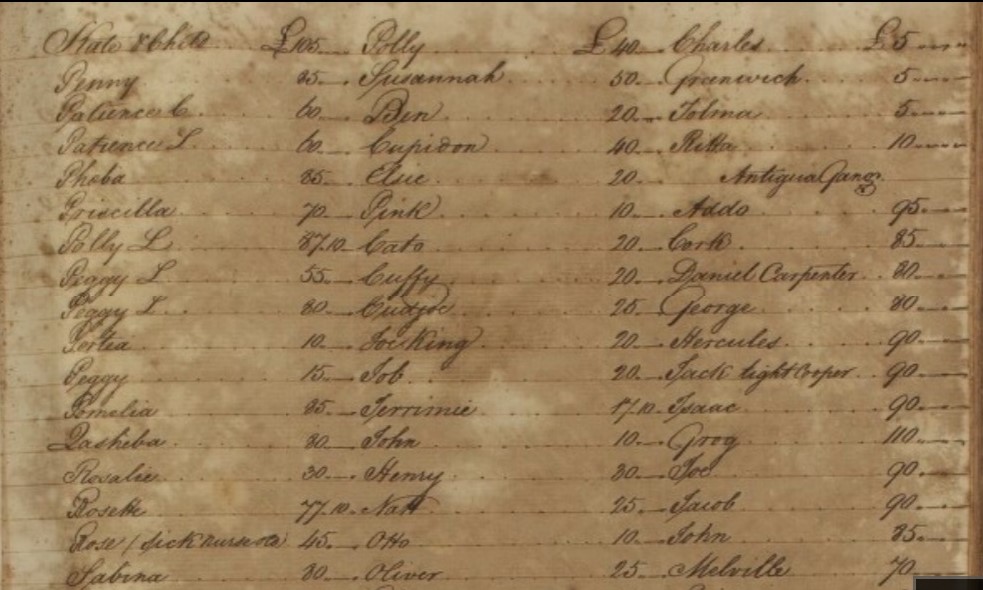 Kate & Child £105 Polly £40 Charles £5
Penny 85 Susannah 50 Greenwich 5
Patience C 60 Ben 20 Tolma 5
Patience L 60 Cupidon 40 Ritta 10
Phoba 85 Elsie 20 Antigua Gang
Priscilla 70 Pink 10 Addo 95
Polly L 87.10 Cato 20 Cork 85
Peggy L 55 Cuffy 20 Daniel Carpenter 80
Peggy L 80 Cudjoe 25 George 80
10 Joe King 20 Hercules 90
Peggy 15 Job 20 Jack tight Cooper 90
Pomelia 85 Jerrimie 17.10 Isaac 90
Qasheba 80 John 10 Grog 110
Rosalie 30 Henry 30 Joe 90
Rosette 77.10 Natt 25 Jacob 90
Rose / Sick nurse 45 Otto 10 John 85
Sabina 80 Oliver 25 Melville 70